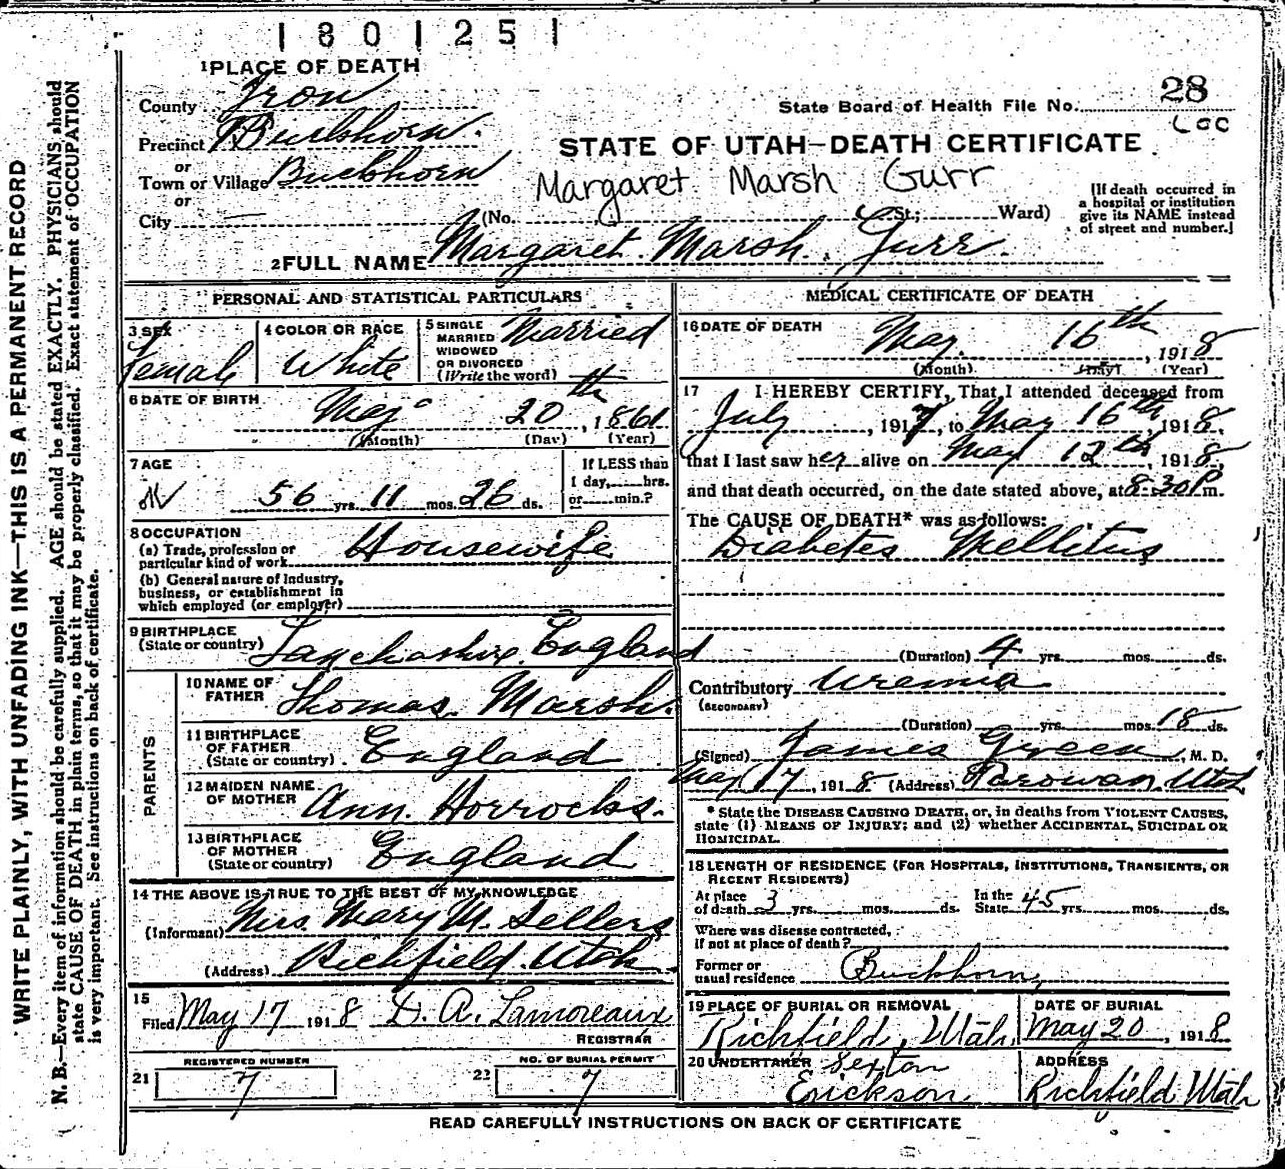 1801251
1 PLACE OF DEATH
County Iron
Precinct Buckhorn.
or
Town or Village Buckhorn
or
City —
State Board of Health File No. 28
STATE OF UTAH—DEATH CERTIFICATE
Margaret Marsh Gurr
(No. St.; Ward)
[If death occurred in
a hospital or institution
give its NAME instead
of street and number.]
2 FULL NAME Margaret Marsh Gurr.
PERSONAL AND STATISTICAL PARTICULARS
3 SEX
Female
4 COLOR OR RACE
White
5 SINGLE
MARRIED
WIDOWED
OR DIVORCED
(Write the word)
Married
6 DATE OF BIRTH
May 20th, 1861
(Month) (Day) (Year)
7 AGE
56 yrs. 11 mos. 26 ds.
If LESS than
1 day, hrs.
or min.?
8 OCCUPATION
(a) Trade, profession or
particular kind of work Housewife
(b) General nature of Industry,
business, or establishment in
which employed (or employer)
9 BIRTHPLACE
(State or country) Lancashire, England
PARENTS
10 NAME OF
FATHER Thomas Marsh.
11 BIRTHPLACE
OF FATHER
(State or country) England
12 MAIDEN NAME
OF MOTHER Ann. Horrocks.
13 BIRTHPLACE
OF MOTHER
(State or country) England
14 THE ABOVE IS TRUE TO THE BEST OF MY KNOWLEDGE
(Informant) Mrs. Mary M. Sellers
(Address) Richfield. Utah.
15
Filed May 17 1918 D. A. Lamoreaux
REGISTRAR
REGISTERED NUMBER
21 7
NO. OF BURIAL PERMIT
22 7
MEDICAL CERTIFICATE OF DEATH
16 DATE OF DEATH
May 16th, 1918
(Month) (Day) (Year)
17 I HEREBY CERTIFY, That I attended deceased from
July, 1917, to May 16th, 1918,
that I last saw her alive on May 12th, 1918,
and that death occurred, on the date stated above, at 8-30 P m.
The CAUSE OF DEATH* was as follows:
Diabetes Mellitus
(Duration) 4 yrs. mos. ds.
Contributory Uremia
(SECONDARY)
(Duration) yrs. mos. 18 ds.
(Signed) James Green, M. D.
May 17, 1918 (Address) Parowan. Utah
* State the DISEASE CAUSING DEATH, or, in deaths from VIOLENT CAUSES,
state (1) MEANS OF INJURY; and (2) whether ACCIDENTAL, SUICIDAL OR
HOMICIDAL.
18 LENGTH OF RESIDENCE (FOR HOSPITALS, INSTITUTIONS, TRANSIENTS, OR
RECENT RESIDENTS)
At place
of death 3 yrs. mos. ds. In the
State 45 yrs. mos. ds.
Where was disease contracted,
if not at place of death?
Former or
usual residence Buckhorn,
19 PLACE OF BURIAL OR REMOVAL
Richfield, Utah.
DATE OF BURIAL
May 20, 1918
20 UNDERTAKER Sexton
Erickson
ADDRESS
Richfield Utah
READ CAREFULLY INSTRUCTIONS ON BACK OF CERTIFICATE
WRITE PLAINLY, WITH UNFADING INK—THIS IS A PERMANENT RECORD
N. B.—Every item of information should be carefully supplied. AGE should be stated EXACTLY. PHYSICIANS should
state CAUSE OF DEATH in plain terms, so that it may be properly classified. Exact statement of OCCUPATION
is very important. See instructions on back of certificate.